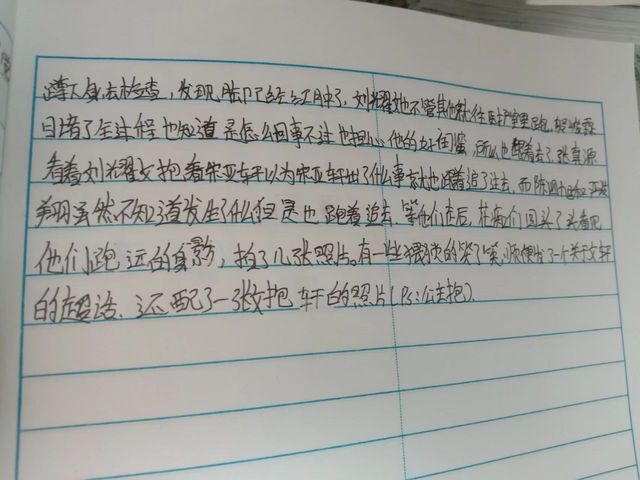 蹲下身去检查，发现脚已经红肿了，刘耀文也不管其他就往医护室里跑，贺峻霖
目睹了全过程也知道是怎么回事不过也担心他的好闺蜜，所以也跟着去了，张真源
看着刘耀文抱着宋亚轩以为宋亚轩出了什么事就也跟着追了过去，而陈
翔虽然不知道发生了什么但是也跑着追去，等他们走后，在他们回头了头看见
他们跑远的身影，拍了几张照片。有一些猥琐的笑了笑，顺便发了一个关于文轩
的超话，还配了一张文抱轩的照片(Ps:公主抱).